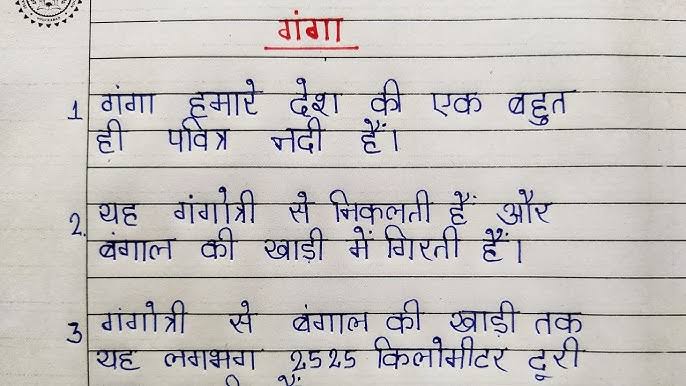 गंगा
1 गंगा हमारे देश की एक बहुत
ही पवित्र नदी हैं।
2. यह गंगोत्री से निकलती हैं और
बंगाल की खाड़ी में गिरती हैं।
3 गंगोत्री से बंगाल की खाड़ी तक
यह लगभग 2525 किलोमीटर दूरी